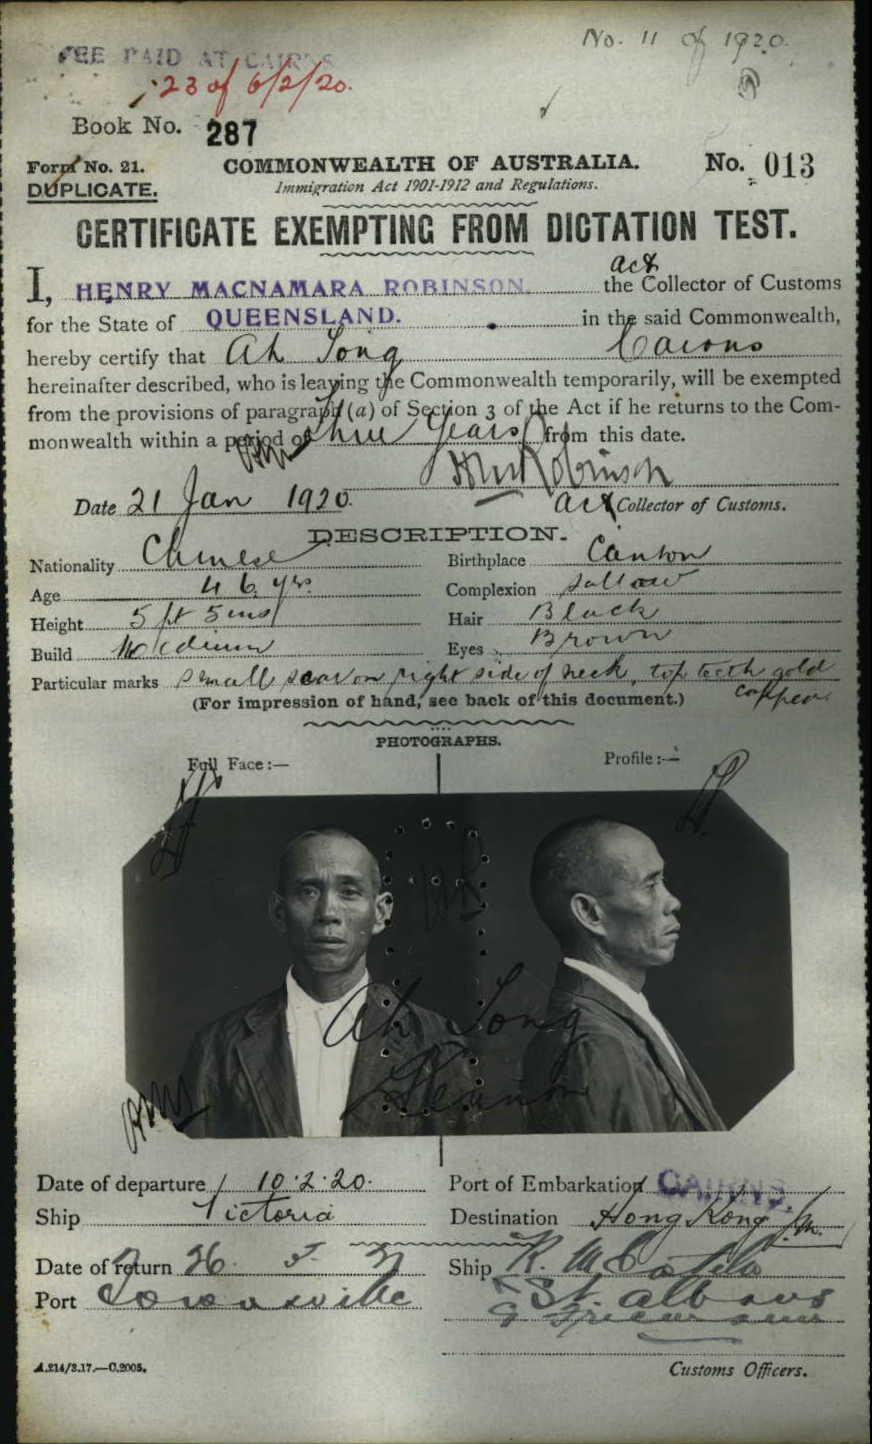 No. 11 of 1920.
FEE PAID AT CAIRNS
23 of 6/2/20.
Book No. 287
Form No. 21.
COMMONWEALTH OF AUSTRALIA.
No. 013
DUPLICATE.
Immigration Act 1901-1912 and Regulations.
CERTIFICATE EXEMPTING FROM DICTATION TEST.
act
I, HENRY MACNAMARA ROBINSON. the Collector of Customs
for the State of QUEENSLAND. in the said Commonwealth,
hereby certify that Ah Tong Cairns
hereinafter described, who is leaving the Commonwealth temporarily, will be exempted
from the provisions of paragraph (a) of Section 3 of the Act if he returns to the Com-
monwealth within a period of three years from this date.
HMRobinson
Date 21 Jan 1920. Act Collector of Customs.
DESCRIPTION.
Nationality Chinese Birthplace Canton
Age 46 yrs. Complexion Sallow
Height 5 ft 5 ins Hair Black
Build Medium Eyes Brown
Particular marks small scar on right side of neck, top teeth gold
(For impression of hand, see back of this document.)
PHOTOGRAPHS.
Full Face:— Profile:—
Ah Tong
Date of departure 10.2.20. Port of Embarkation CAIRNS.
Ship Victoria Destination Hong Kong
Date of return 26 Ship St. Albans
Port Townsville
A.214/3.17.—C.2005.
Customs Officers.